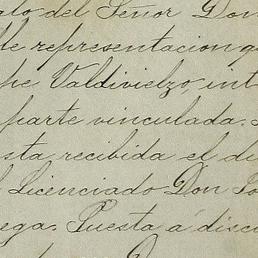 ato del Señor Don
lle representacion q
pe Valdivielzo, int
parte vinculada.
sta, recibida el di
l Licenciado Don Jo
ega. Puesta á discu